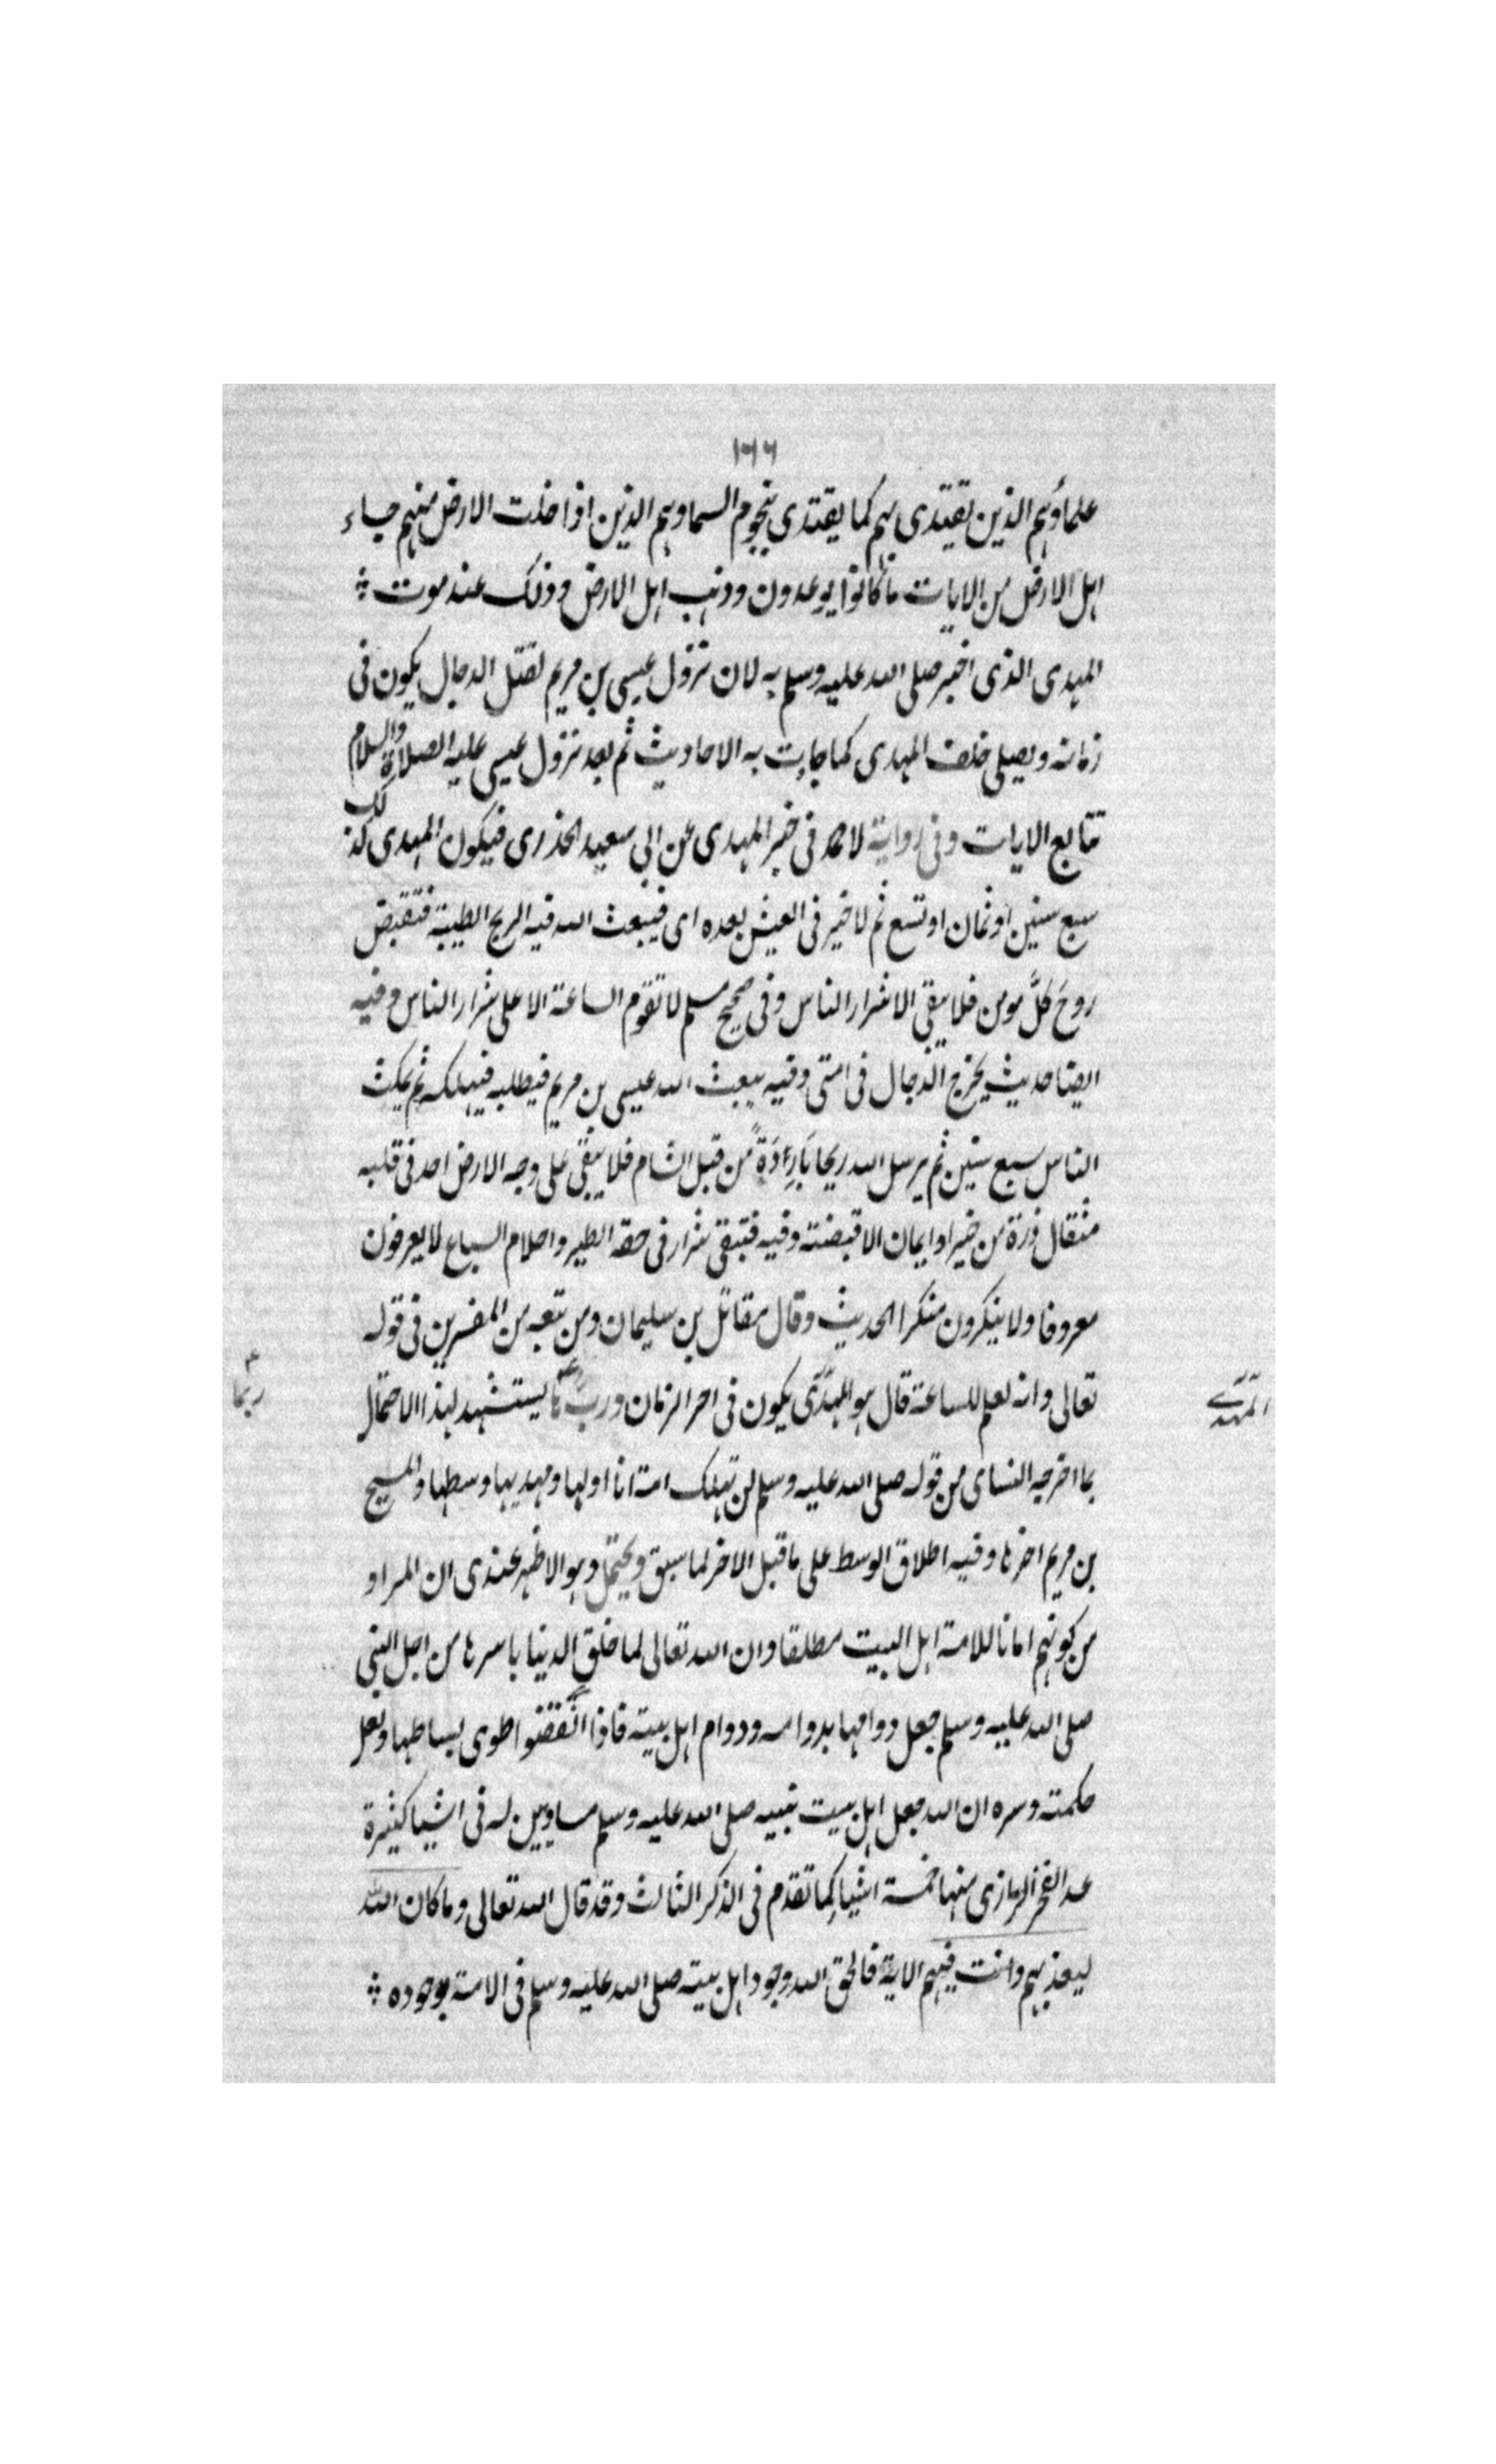 ١٦٦
علماؤهم الذين يقتدى بهم كما يقتدى بنجوم السما وهم الذين اذا خلت الارض منهم جاء
اهل الارض من الايات ما كانوا يوعدون وذهب اهل الارض وذلك عند موت ؞
المهدى الذى اخبر صلى الله عليه وسلم به لان نزول عيسى بن مريم لقتل الدجال يكون فى
زمانه ويصلى خلف المهدى كما جاءت به الاحاديث ثم بعد نزول عيسى عليه الصلاة والسلام
تتابع الايات وفى رواية لاحمد فى خبر المهدى عن ابى سعيد الخدرى فيكون المهدى كذلك
سبع سنين او ثمان او تسع ثم لا خير فى العيش بعده اى فيبعث الله فيه الريح الطيبة فتقبض
روح كل مومن فلا يبقى الا شرار الناس وفى صحيح مسلم لا تقوم الساعة الا على شرار الناس وفيه
ايضا حديث يخرج الدجال فى امتى وفيه يبعث الله عيسى بن مريم فيطلبه فيهلكه ثم يمكث
الناس سبع سنين ثم يرسل الله ريحا باردة من قبل الشام فلا يبقى على وجه الارض احد فى قلبه
مثقال ذرة من خير او ايمان الا قبضته وفيه فتبقى شرار فى خفة الطير واحلام السباع لا يعرفون
معروفا ولا ينكرون منكرا الحديث وقال مقاتل بن سليمان ومن تبعه من المفسرين فى قوله
تعالى وانه لعلم للساعة قال هو المهدى يكون فى اخر الزمان وربما يستشهد لهذا الاحتمال
المهدے
ربما
بما اخرجه النساى من قوله صلى الله عليه وسلم لن تهلك امة انا اولها ومهديها وسطها والمسيح
بن مريم اخرها وفيه اطلاق الوسط على ما قبل الاخر لما سبق ويحتمل وهو الاظهر عندى ان المراد
من كونهم امانا للامة اهل البيت مطلقا وان الله تعالى لما خلق الدنيا باسرها من اجل النبى
صلى الله عليه وسلم جعل دوامها بدوامه ودوام اهل بيته فاذا انقضوا طوى بساطها ولعل
حكمته وسره ان الله جعل اهل بيت نبيه صلى الله عليه وسلم مساويين له فى اشيا كثيرة
عد الفخر الرازى منها خمسة اشيا كما تقدم فى الذكر الثالث وقد قال الله تعالى وما كان الله
ليعذبهم وانت فيهم الاية فالحق الله وجود اهل بيته صلى الله عليه وسلم فى الامة بوجوده ؞